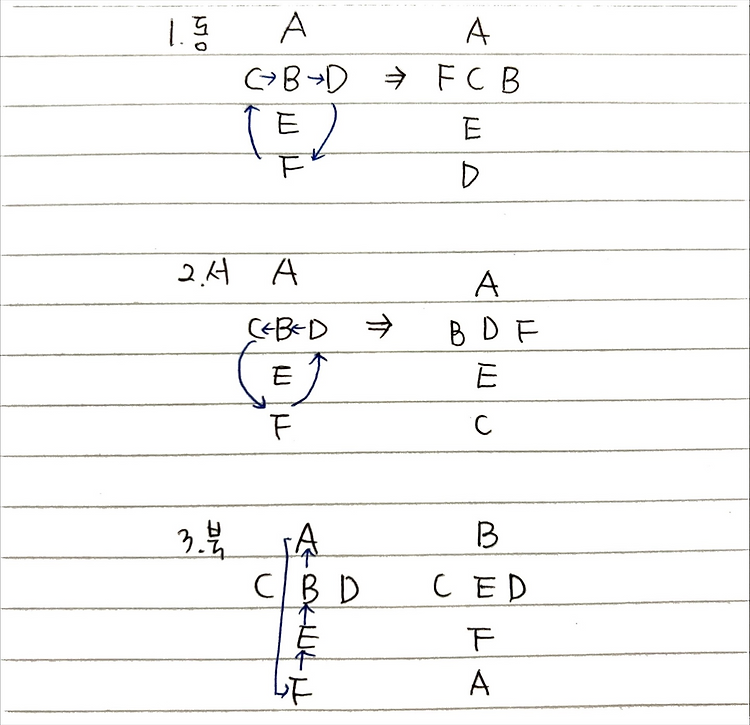 1. 동 A A
C→B→D ⇒ F C B
E E
F D
2. 서 A A
C←B←D ⇒ B D F
E E
F C
3. 북 A B
C B D C E D
E F
F A